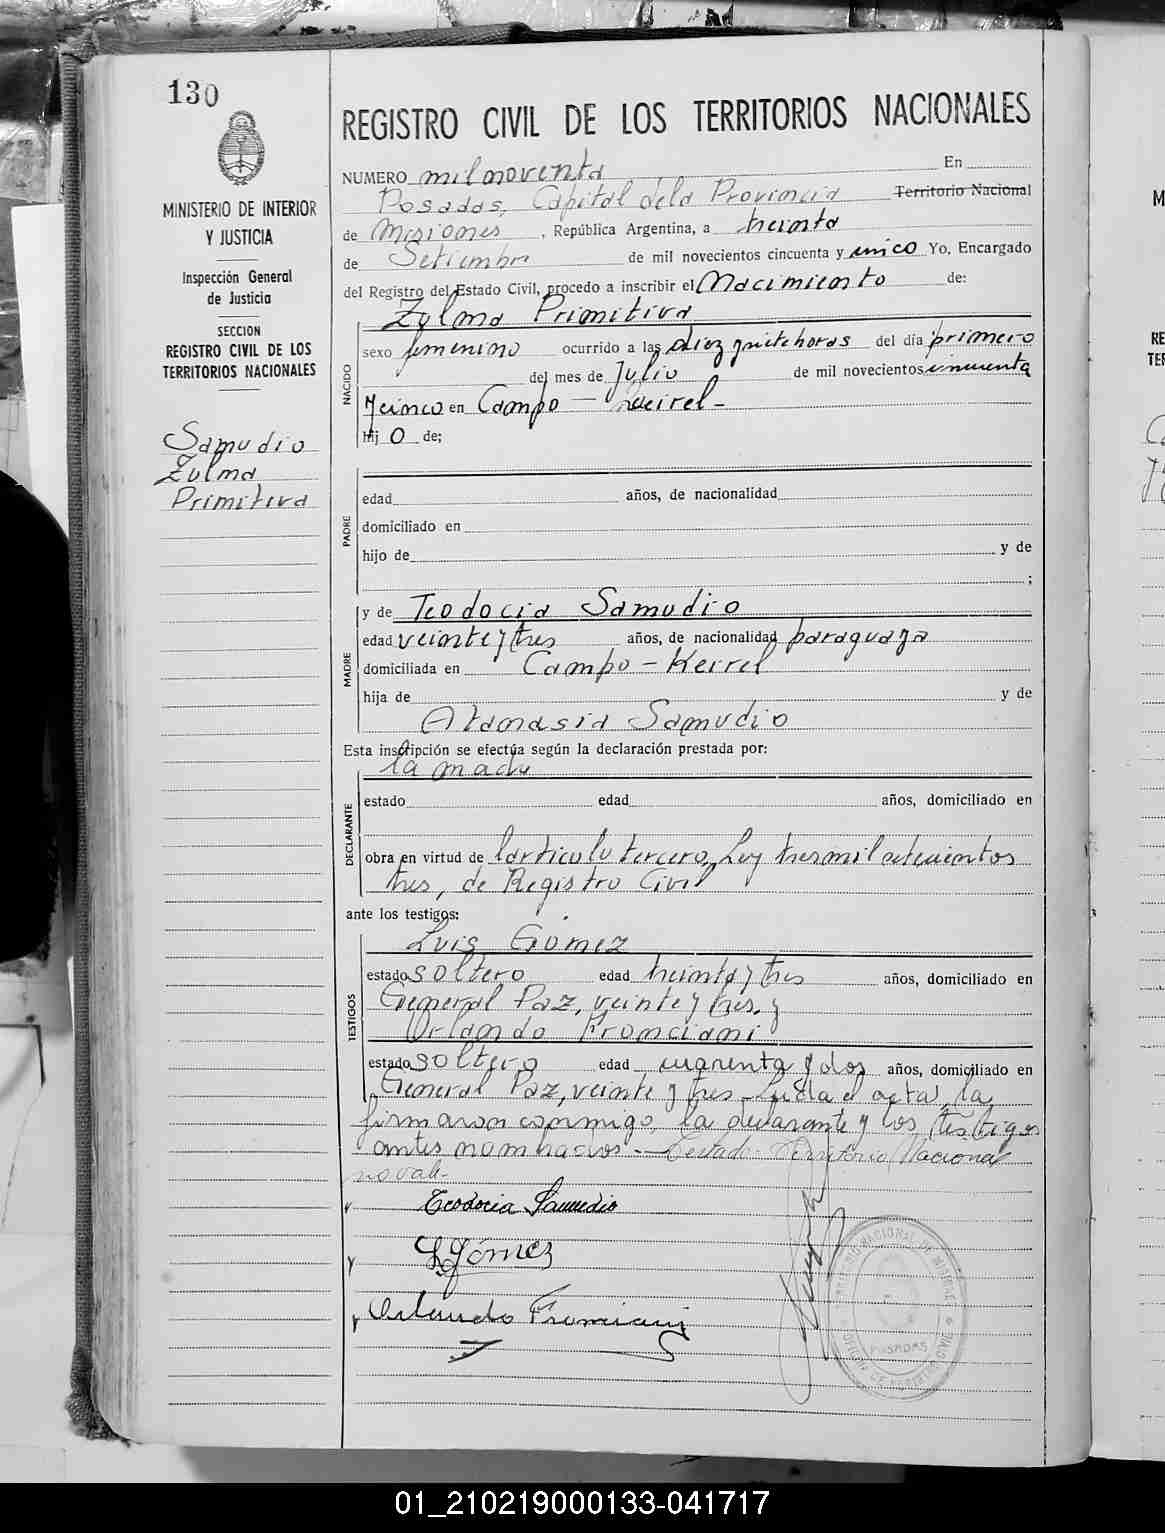 130
MINISTERIO DE INTERIOR
Y JUSTICIA
Inspección General
de Justicia
SECCION
REGISTRO CIVIL DE LOS
TERRITORIOS NACIONALES
Samudio
Zulma
Primitiva
REGISTRO CIVIL DE LOS TERRITORIOS NACIONALES
NUMERO mil noventa En
Posadas, Capital dela Provincia Territorio Nacional
de Misiones, República Argentina, a treinta
de Setiembre de mil novecientos cincuenta y cinco Yo, Encargado
del Registro del Estado Civil, procedo a inscribir el Nacimiento de:
NACIDO
Zulma Primitiva
sexo femenino ocurrido a las diez y siete horas del día primero
del mes de Julio de mil novecientos cincuenta
y cinco en Campo -
hij o de;
PADRE
edad años, de nacionalidad
domiciliado en
hijo de y de
;
MADRE
y de Teodocia Samudio
edad veinte y tres años, de nacionalidad paraguaya
domiciliada en Campo - Keirel
hija de y de
Atanasia Samudio
Esta inscripción se efectúa según la declaración prestada por:
la madre
DECLARANTE
estado edad años, domiciliado en
obra en virtud de lartículo tercero, Ley tres mil setecientos
tres, de Registro Civil
ante los testigos:
TESTIGOS
Luis Gómez
estado soltero edad treinta y tres años, domiciliado en
General Paz, veinte y tres. y
Orlando Fronciani
estado soltero edad cuarenta y dos años, domiciliado en
General Paz, veinte y tres. Leída el acta, la
firmaron conmigo, la declarante y los testigos
antes nombrados. - Testado: Territorio Nacional
no vale.
Teodocia Samudio
L Gómez
Orlando Fronciani
POSADAS
01_210219000133-041717